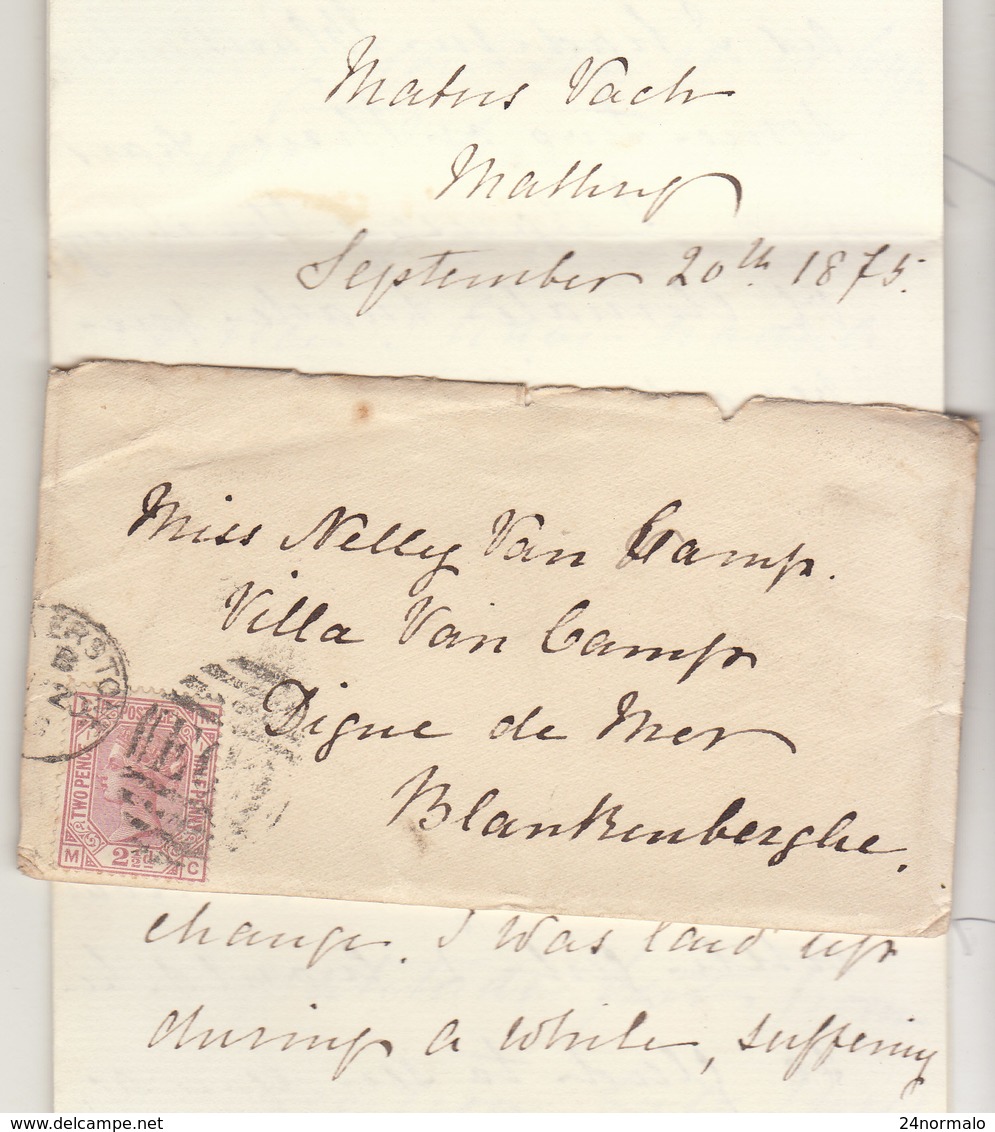 Vach
Malling
September 20th 1875.
Miss Nelly Van Camp.
Villa Van Camp
Digue de Mer
Blankenberghe.
ERSTO
B
20
POS
TWO PENC
PENN
M
2½d
C
change. I was laid up
during a while, suffering
www.delcampe.net
24normalo